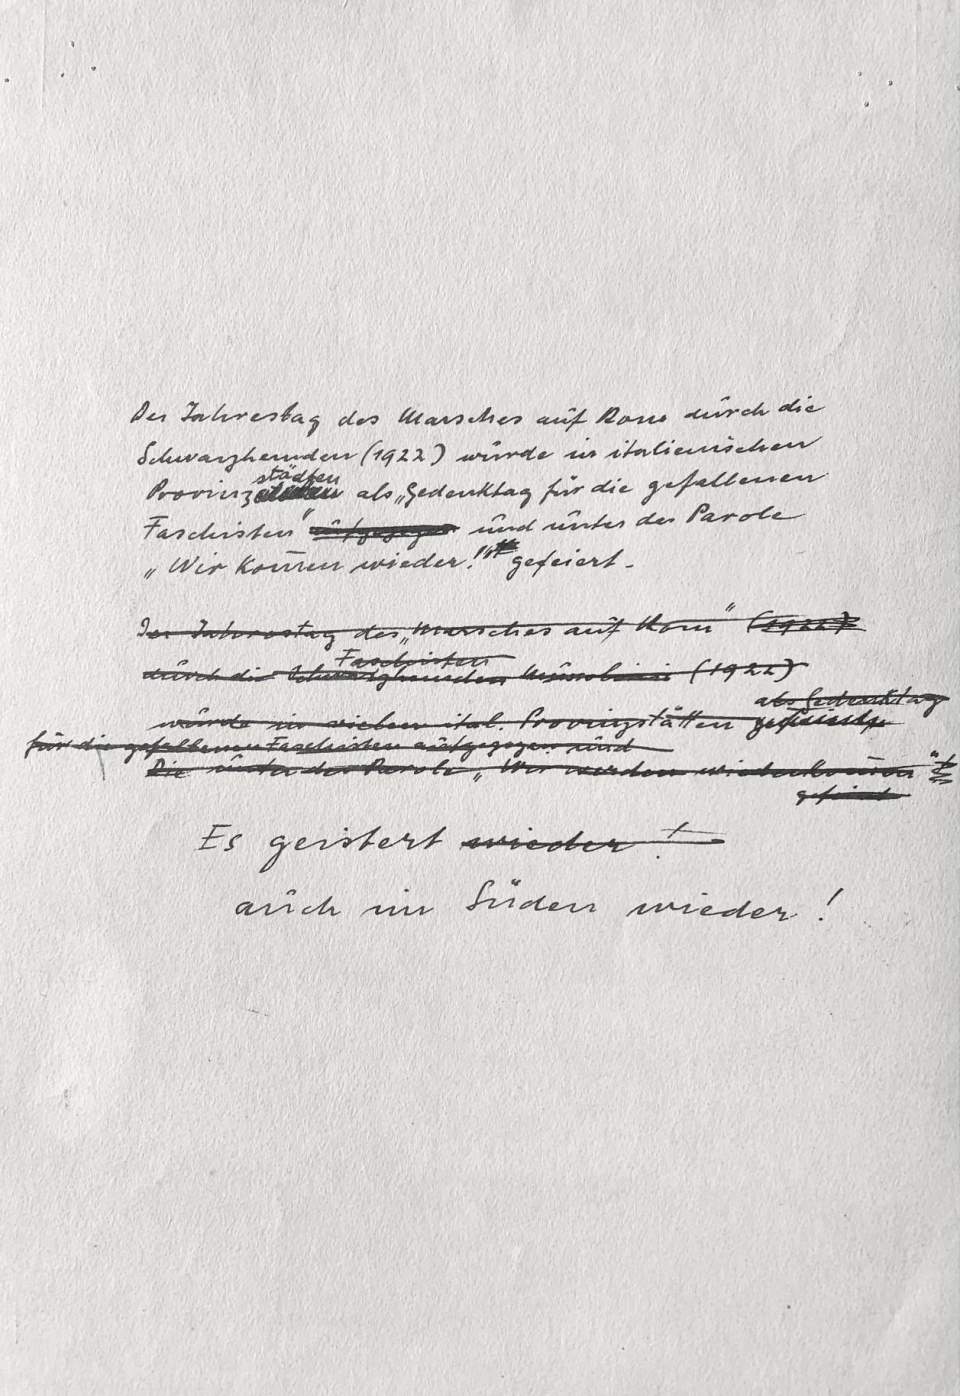 Der Jahrestag des Marsches auf Rom durch die
Schwarzhemden (1922) wurde in italienischen
städten
Provinz als „Gedenktag für die gefallenen
Faschisten" aufgezogen und unter der Parole
„Wir kom̄en wieder!" gefeiert.
Der Jahrestag des „Marsches auf Rom" (1922)
Faschisten
durch die Schwarzhemden Mussolinis (1922)
als Gedenktag
wurde in vielen ital. Provinzstätten gefeiert
für die gefallenen Faschisten aufgezogen und
Die unter der Parole „Wir werden wiederkom̄en"
gefeiert
Es geistert wieder!
auch im Süden wieder!